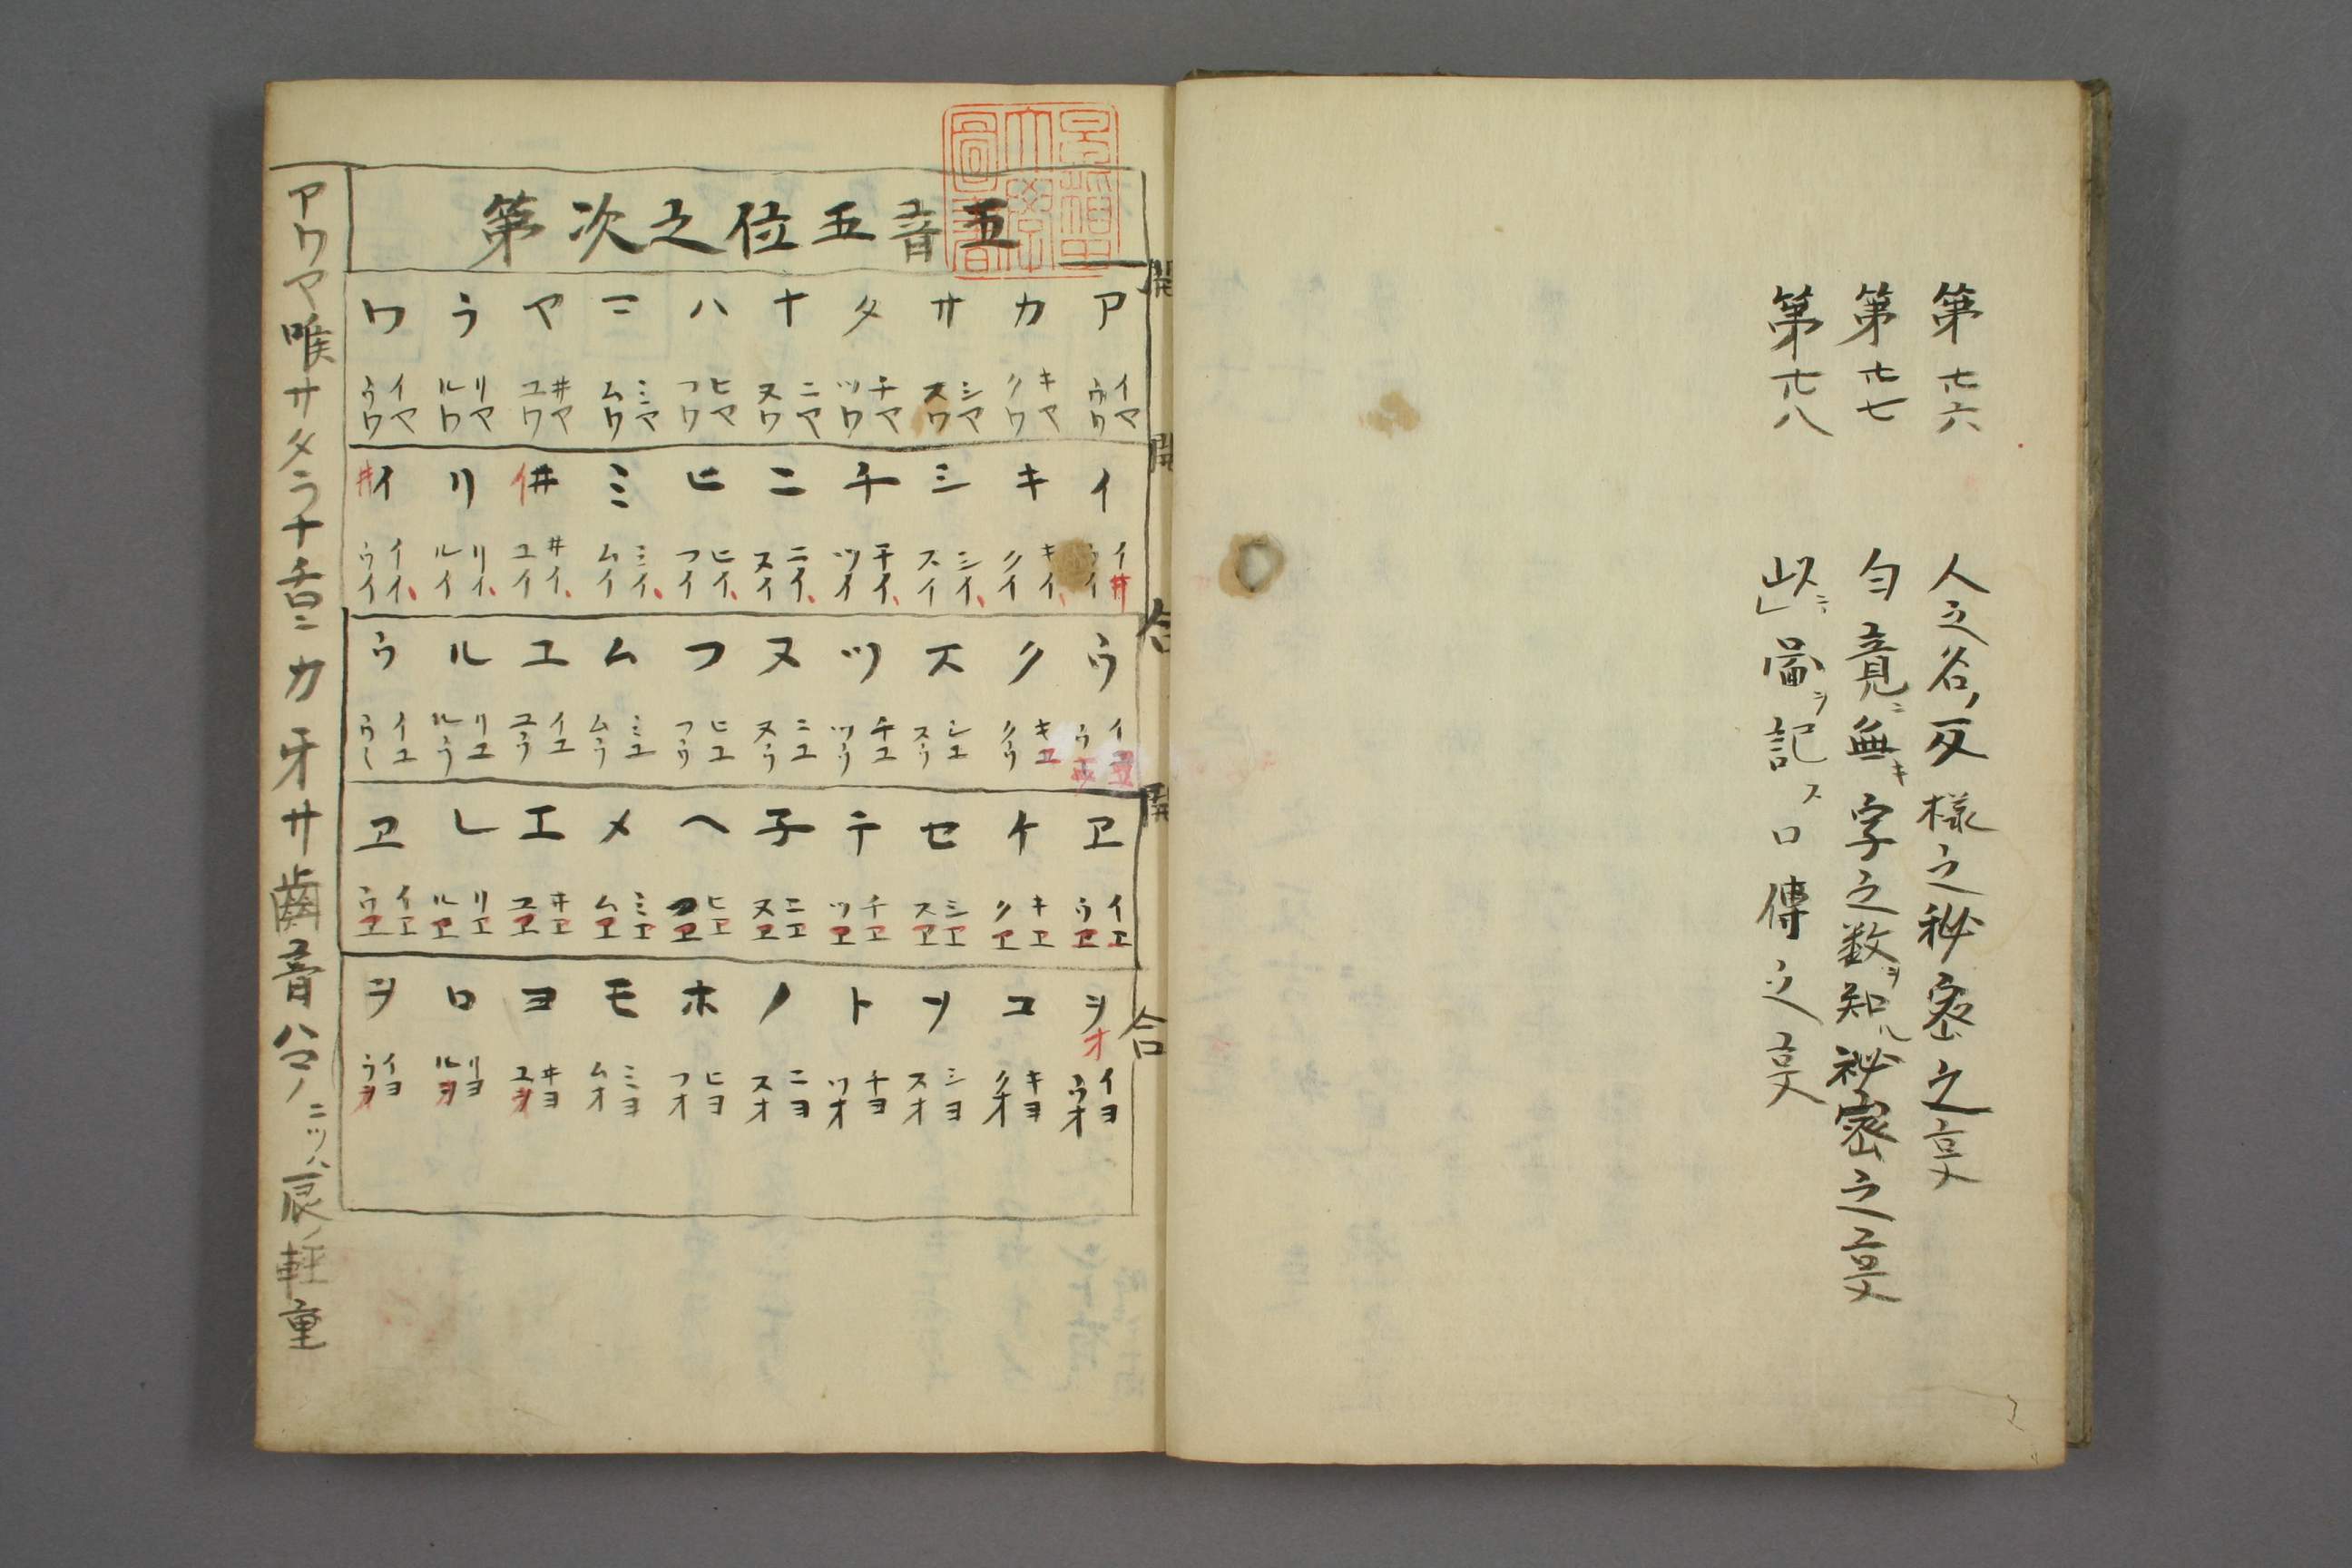 第卅六　人之名ノ反様之秘密之亊
第卅七　勻竟ニ無キ字之数ヲ知ル秘密之亊
第卅八　以上ニ啚ヲ記ス口傳之亊
五音五位之次第
開
アカサタナハマヤラワ
イヤ キヤ シヤ チヤ ニヤ ヒヤ ミヤ ヰヤ リヤ イヤ
ウワ クワ スワ ツワ ヌワ フワ ムワ ユワ ルワ ウワ
開
イキシチニヒミヰイリイヰ
イヰ キイ シイ チイ ニイ ヒイ ミイ ヰイ リイ イイ
ウイ クイ スイ ツイ ヌイ フイ ムイ ユイ ルイ ウイ
合
ウクスツヌフムユルウ
イユ キユ シユ チユ ニユ ヒユ ミユ イユ リユ イユ
クウ スウ ツウ ヌウ フウ ムウ ユウ ルウ
開
ヱケセテ子ヘメエレヱ
イヱ キヱ シヱ チヱ ニヱ ヒヱ ミヱ ヰヱ リヱ イヱ
ウヱ クヱ スヱ ツヱ ヌヱ フヱ ムヱ ユヱ ルヱ ウヱ
合
ヲオコソトノホモヨロヲ
イヨ キヨ シヨ チヨ ニヨ ヒヨ ミヨ ヰヨ リヨ イヨ
ウオ クオ スオ ツオ ヌオ フオ ムオ ユヲ ルヲ ウヲ
アワヤ喉サタラナ舌ニカ牙サ齒音ハマノニツハ唇ノ軽重